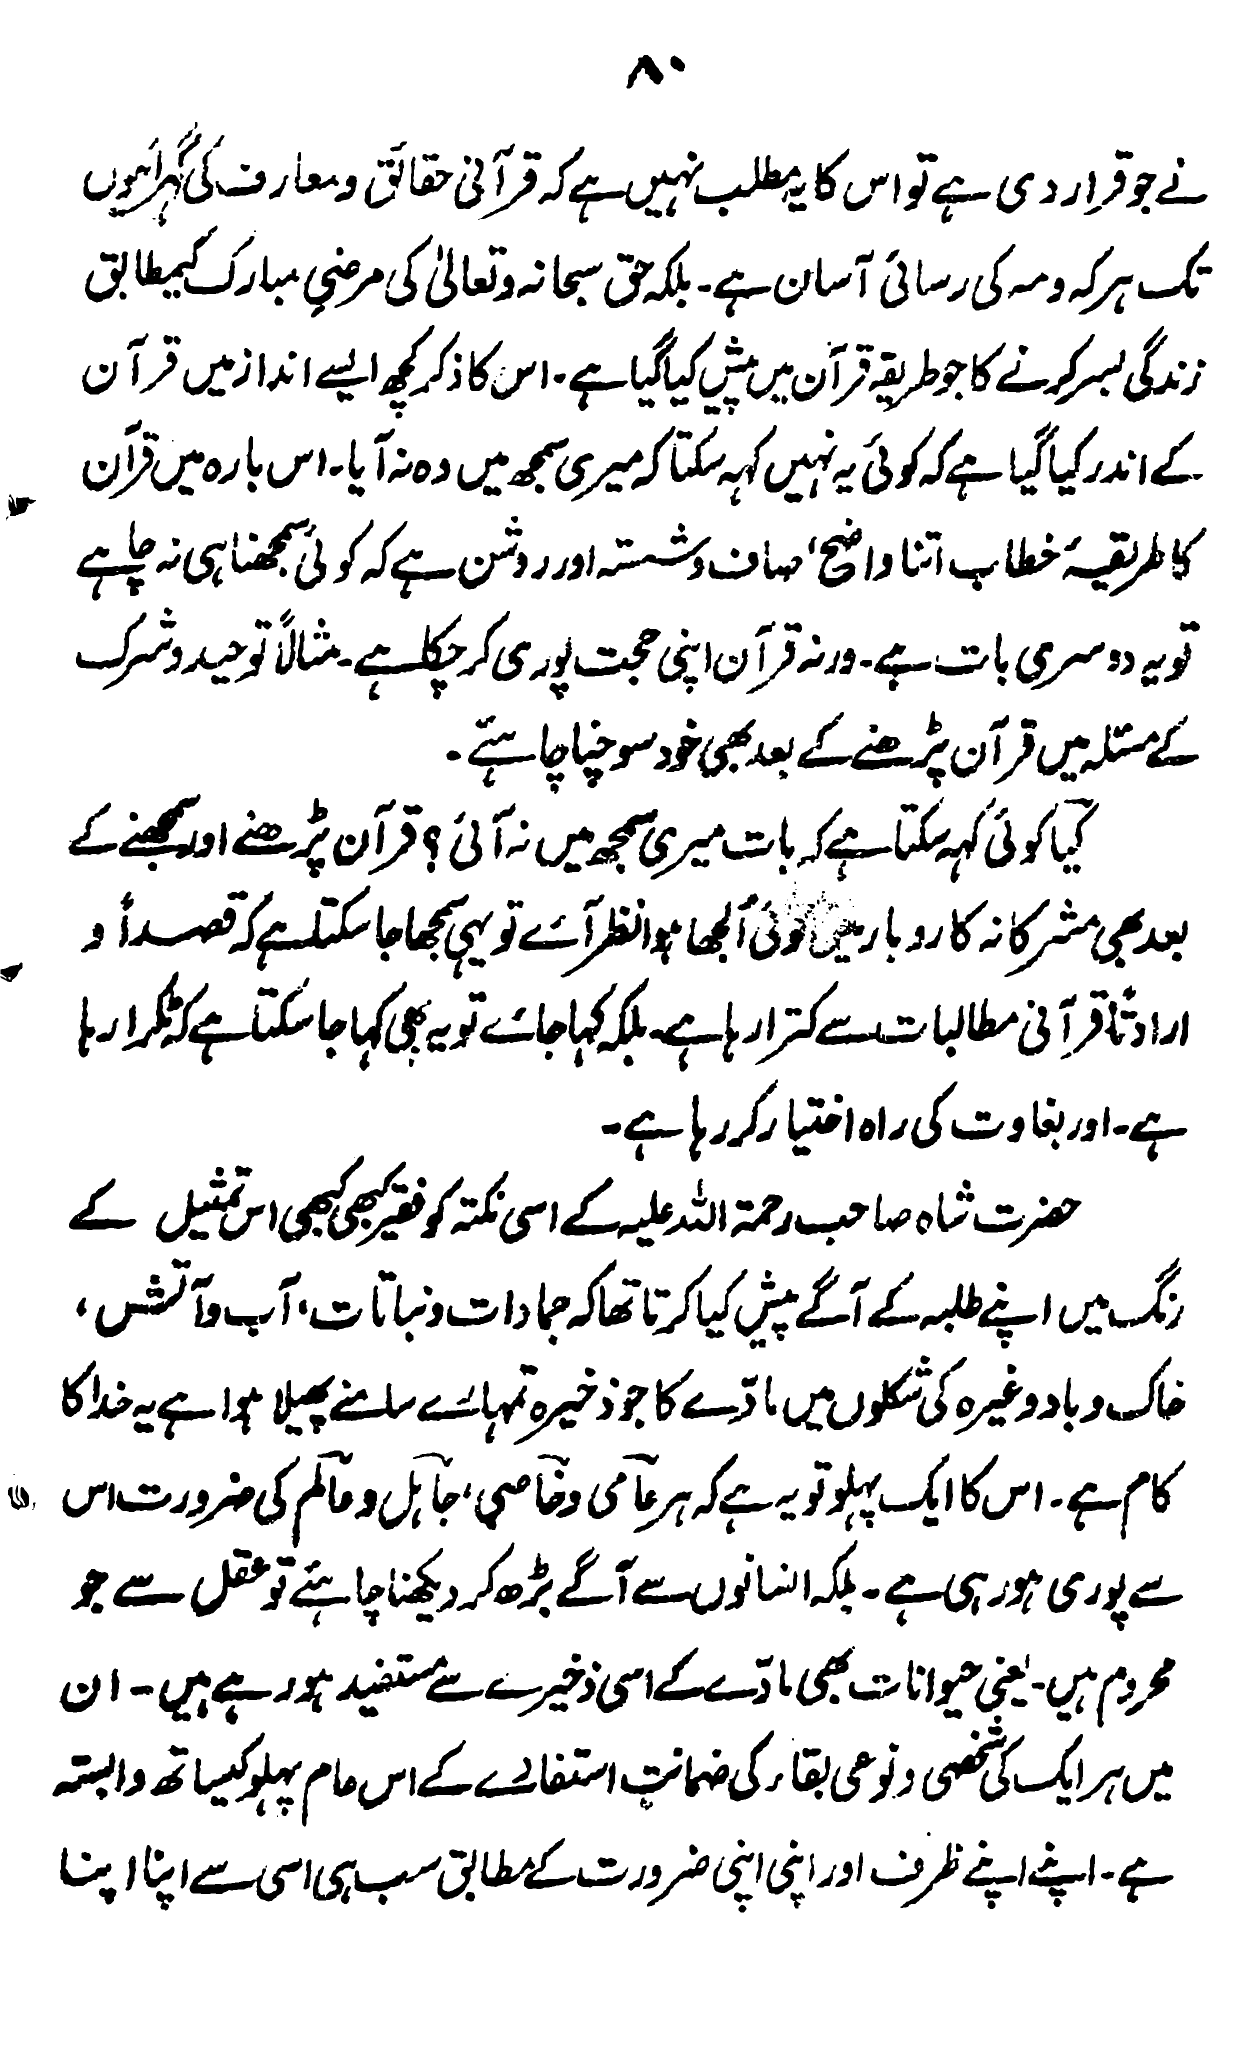 ۸۰
نے جو قرار دی ہے تو اس کا یہ مطلب نہیں ہے کہ قرآنی حقائق و معارف کی گہرائیوں
تک ہر کہ ومہ کی رسائی آسان ہے۔ بلکہ حق سبحانہ وتعالیٰ کی مرضیِ مبارک کیمطابق
زندگی بسر کرنے کا جو طریقہ قرآن میں پیش کیا گیا ہے۔ اس کا ذکر کچھ ایسے انداز میں قرآن
کے اندر کیا گیا ہے کہ کوئی یہ نہیں کہہ سکتا کہ میری سمجھ میں وہ نہ آیا۔ اس بارہ میں قرآن
کا طریقۂ خطاب اتنا واضح، صاف وشستہ اور روشن ہے کہ کوئی سمجھنا ہی نہ چاہے
تو یہ دوسری بات ہے۔ ورنہ قرآن اپنی حجت پوری کر چکا ہے۔ مثالاً توحید وشرک
کے مسئلہ میں قرآن پڑھنے کے بعد بھی خود سوچنا چاہئے۔
کیا کوئی کہہ سکتا ہے کہ بات میری سمجھ میں نہ آئی؟ قرآن پڑھنے اور سمجھنے کے
بعد بھی مشرکانہ کاروبار میں کوئی اُلجھا ہوا نظر آئے تو یہی سمجھا جا سکتا ہے کہ قصداً و
ارادتاً قرآنی مطالبات سے کترا رہا ہے۔ بلکہ کہا جائے تو یہ بھی کہا جا سکتا ہے کہ ٹکرا رہا
ہے۔ اور بغاوت کی راہ اختیار کر رہا ہے۔
حضرت شاہ صاحب رحمۃ اللہ علیہ کے اسی نکتہ کو فقیر کبھی کبھی اس تمثیل کے
رنگ میں اپنے طلبہ کے آگے پیش کیا کرتا تھا کہ جمادات ونباتات، آب وآتش،
خاک وباد وغیرہ کی شکلوں میں مادّے کا جو ذخیرہ تمہارے سامنے پھیلا ہوا ہے یہ خدا کا
کام ہے۔ اس کا ایک پہلو تو یہ ہے کہ ہر عامی وخاصی، جاہل وعالم کی ضرورت اس
سے پوری ہو رہی ہے۔ بلکہ انسانوں سے آگے بڑھ کر دیکھنا چاہئے تو عقل سے جو
محروم ہیں۔ یعنی حیوانات بھی مادّے کے اسی ذخیرے سے مستفید ہو رہے ہیں۔ ان
میں ہر ایک کی شخصی ونوعی بقاء کی ضمانت استفادے کے اس عام پہلو کیساتھ وابستہ
ہے۔ اپنے اپنے ظرف اور اپنی اپنی ضرورت کے مطابق سب ہی اسی سے اپنا اپنا